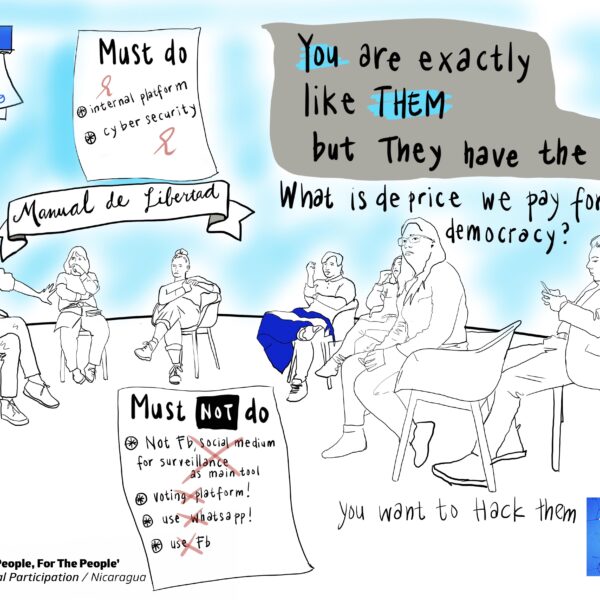 Must do
internal platform
cyber security
Manual de Libertad
You are exactly
like THEM
but They have the
What is de price we pay for
democracy?
Must NOT do
Not Fb, social medium
for surveillance
as main tool
voting platform!
use whatsapp!
use Fb
you want to Hack them
People, For The People'
al Participation / Nicaragua